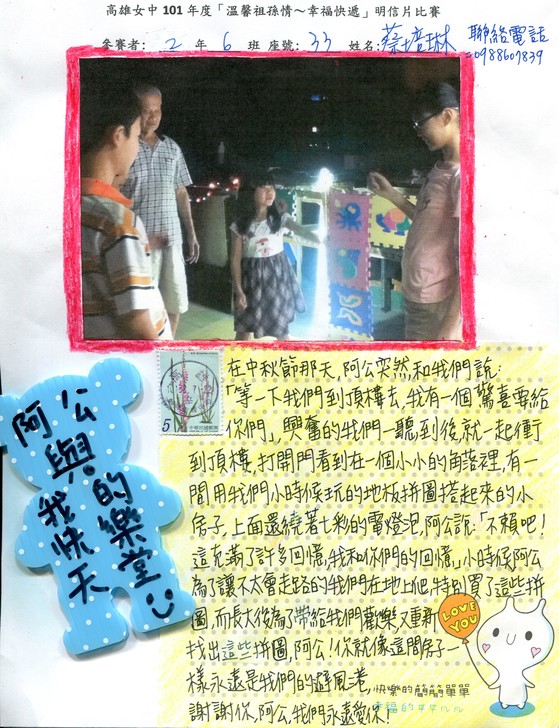 高雄女中 101 年度「溫馨祖孫情～幸福快遞」明信片比賽
參賽者： 2 年 6 班 座號：33 姓名：蔡培琳 聯絡電話
0988609839
5
阿公與我的快樂天堂
在中秋節那天，阿公突然和我們說：
「等一下我們到頂樓去，我有一個驚喜要給
你們」，興奮的我們一聽到後就一起衝
到頂樓，打開門看到在一個小小的角落裡，有一
間用我們小時候玩的地板拼圖搭起來的小
房子，上面還繞著七彩的電燈泡，阿公說：「不賴吧！
這充滿了許多回憶，我和你們的回憶」小時候，阿公
為了讓不太會走路的我們在地上爬，特別買了這些拼
圖，而長大後為了帶給我們歡樂又重新
找出這些拼圖，阿公！你就像這間房子一
樣永遠是我們的避風港，
謝謝你，阿公，我們永遠愛你！
LOVE YOU
快樂的簡簡單單
幸福的